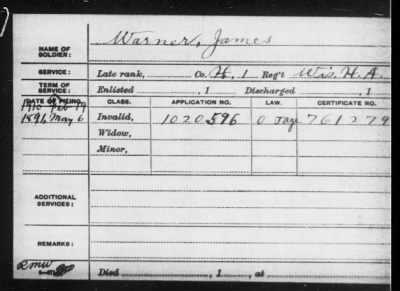 NAME OF SOLDIER: Warner, James
SERVICE: Late rank, Co. H, 1 Reg't Wis. H. A.
TERM OF SERVICE: Enlisted , 1 Discharged , 1
DATE OF FILING. CLASS. APPLICATION NO. LAW. CERTIFICATE NO.
1891, May 6 Invalid, 1020596 761279
Widow,
Minor,
ADDITIONAL SERVICES:
REMARKS:
Died , 1 , at